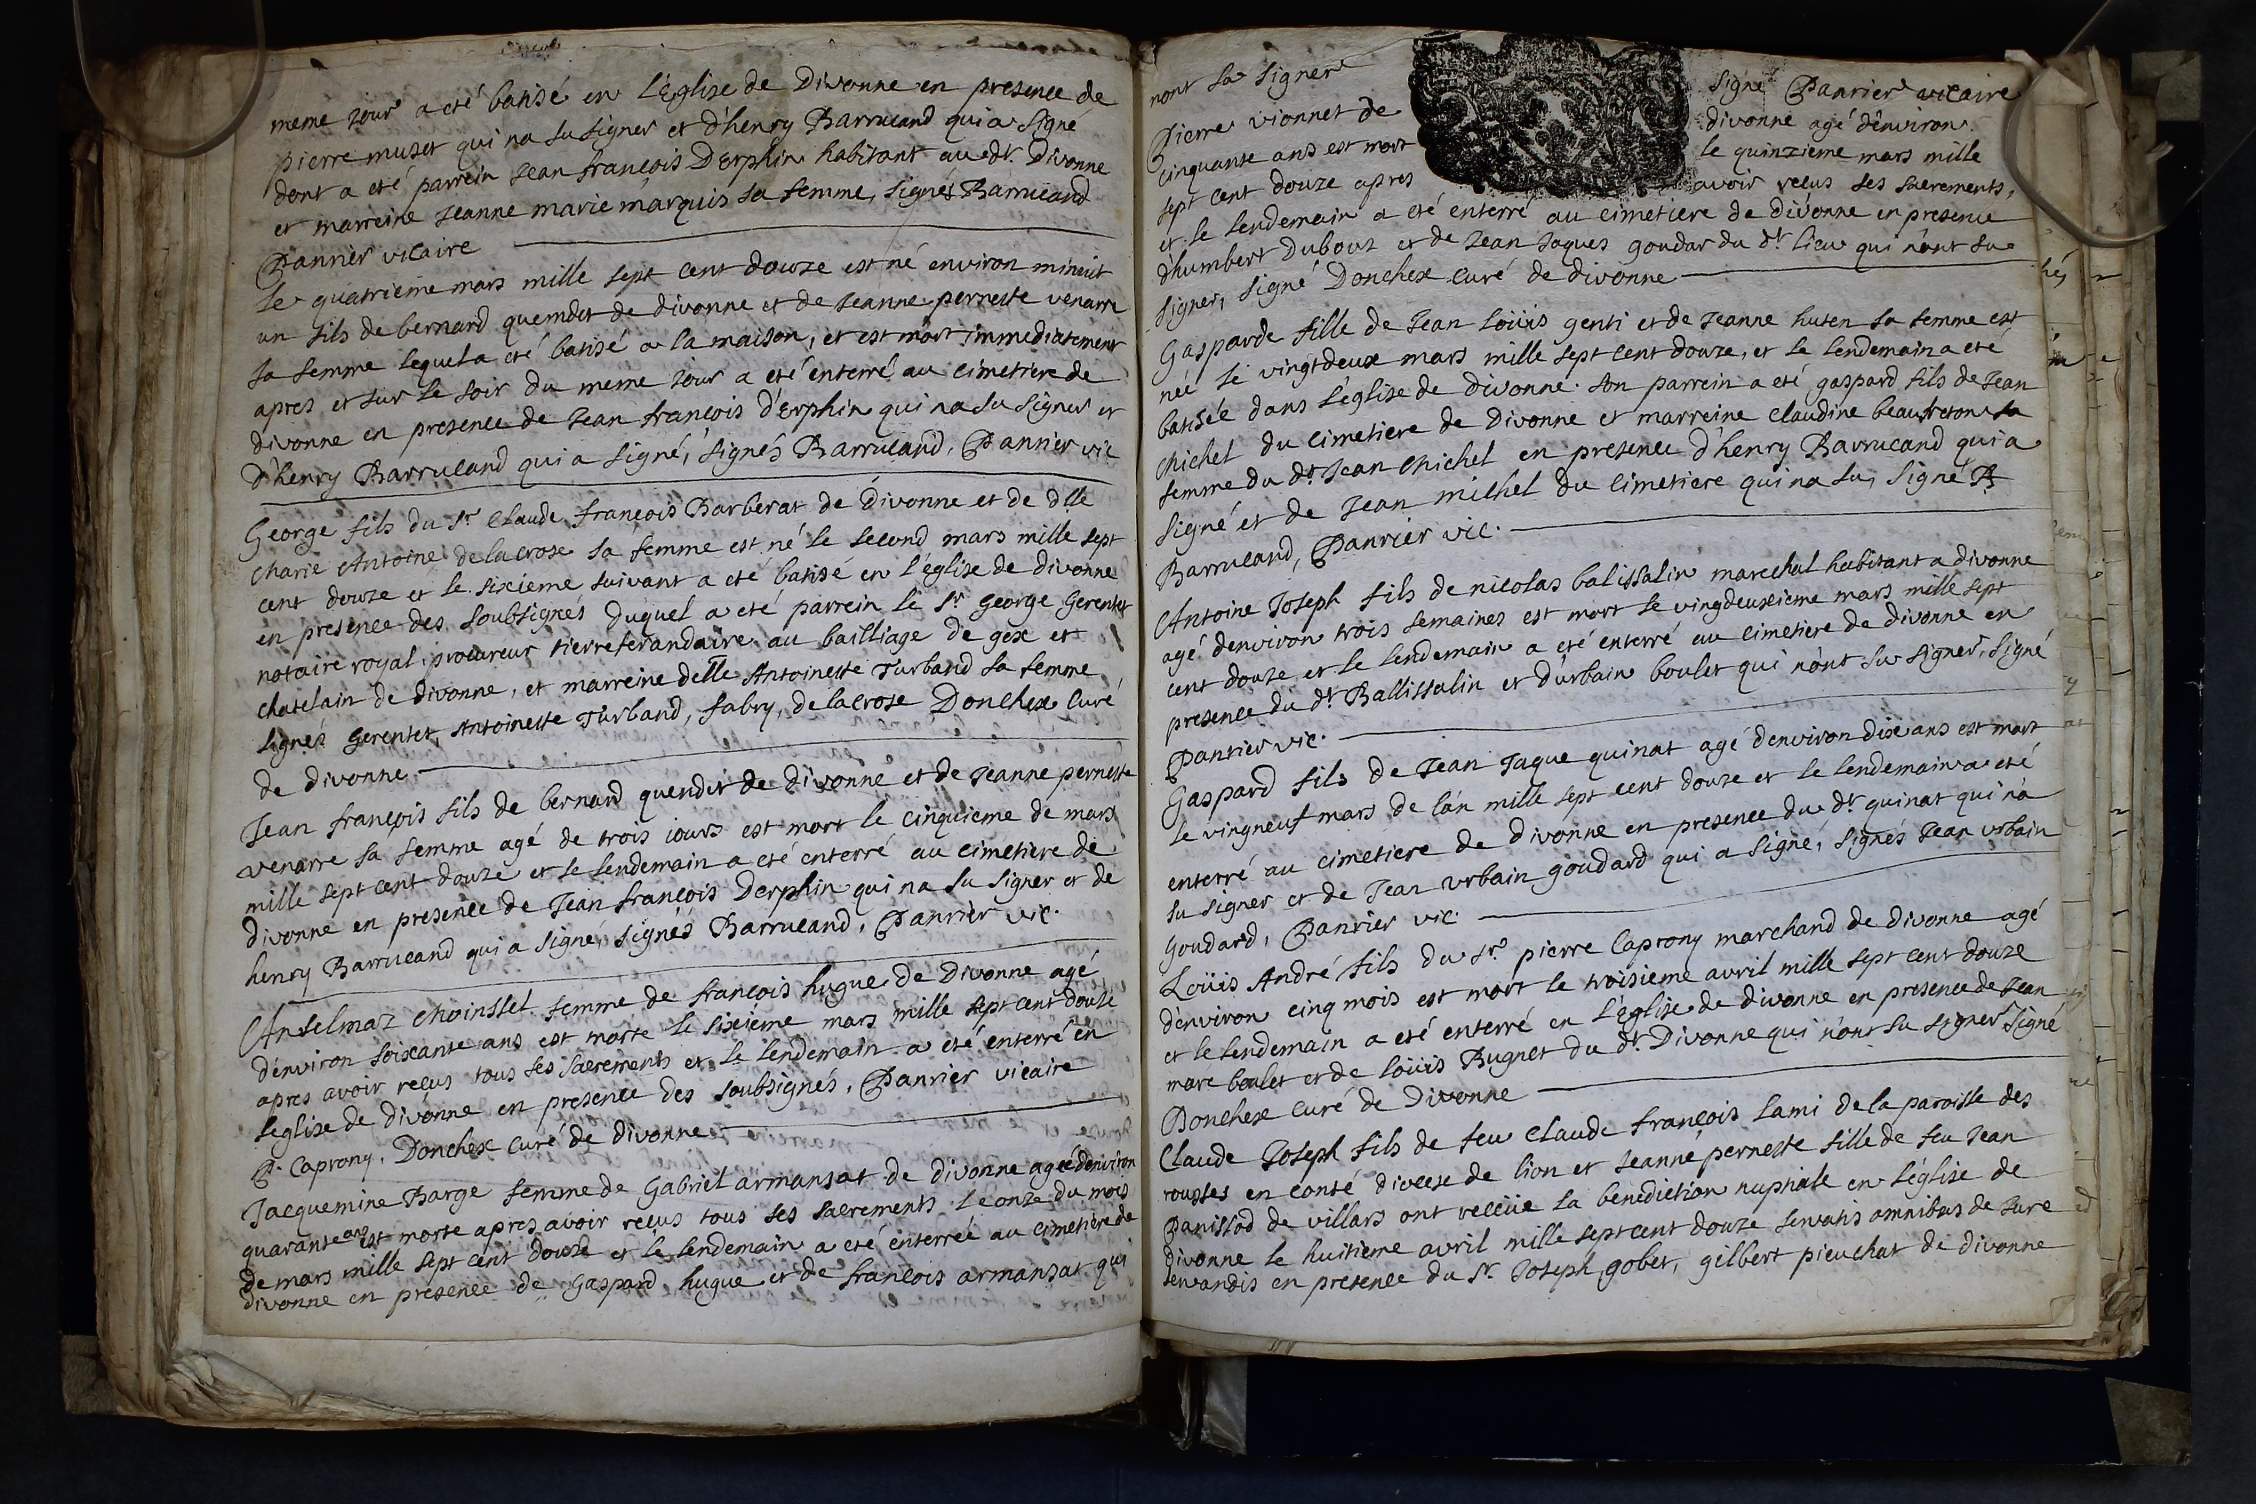 meme jour a eté batisé en L'Eglise de Divonne en presence de
pierre muset qui na su signer et d'henry Barrucand qui a signé
dont a eté parrein Jean françois Derphin habitant au dt. Divonne
et marreine Jeanne marie marquis sa femme, signés Barrucand
Panrier vicaire
Le quatrieme mars mille sept cent douze est né environ minuit
un fils de bernard quemdet de divonne et de Jeanne pernette venarre
sa femme lequel a eté batisé a la maison, et est mort immediatement
apres et sur le soir du meme jour a eté enterré au cimetiere de
divonne en presence de Jean françois d'Erphin qui na su signer et
d'henry Barrucand qui a signé, signés Barrucand, Panrier vic
George fils du Sr. Claude françois Barberat de divonne et de dlle
Marie Antoine de lacrose sa femme est né le second mars mille sept
cent douze et le sixieme suivant a eté batisé en l'église de divonne
en presence des soubsignés duquel a eté parrein le Sr George Gerentet
notaire royal, procureur tierreferandaire au bailliage de gex et
chatelain de divonne, et marreine delle Antoinette Turband sa femme
signés Gerentet, Antoinette Turband, fabry, de lacrose Donchex Curé
de divonne
Jean françois fils de bernard quendet de divonne et de Jeanne pernette
venarre sa femme agé de trois jours est mort le cinquieme de mars
mille sept cent douze et le lendemain a eté enterré au cimetiere de
divonne en presence de Jean françois Derphin qui na su signer et de
henry Barrucand qui a signé, signés Barrucand, Panrier vic.
Anselmaz Moinsset femme de françois hugue de Divonne agé
d'environ soixante ans est morte le sixieme mars mille sept cent douze
apres avoir reçus tous ses sacrements et le lendemain a eté enterré en
leglise de divonne en presence des soubsignés, Panrier vicaire
P. Caprony, Donchex curé de divonne
Jacquemine Barge femme de Gabriel armansat de divonne ageé d'environ
quarante ans est morte apres avoir reçus tous ses sacrements le onze du mois
de mars mille sept cent douze et le lendemain a eté enterreé au cimetiere de
divonne en presence de Gaspard hugue et de françois armansat qui
nont su signer signé Panrier vicaire
Pierre vionnet de divonne agé d'environ
cinquante ans est mort le quinzieme mars mille
sept cent douze apres avoir reçus ses sacrements,
et le lendemain a eté enterré au cimetiere de divonne en presence
d'humbert Dubouz et de Jean Jaques goudar du dt lieu qui n'ont su
signer, signé Donchex curé de divonne
Gasparde fille de Jean Loüis genti et de Jeanne huten sa femme est
née le vingtdeux mars mille sept cent douze, et le lendemain a eté
batisée dans l'église de divonne. son parrein a eté gaspard fils de Jean
Michel du cimetiere de Divonne et marreine claudine beaufreton la
femme du dt Jean Michel en presence d'henry Barrucand qui a
signé et de Jean michel du cimetiere qui na su, signé B
Barrucand, Panrier vic.
Antoine Joseph fils de nicolas balissalin marechal habitant a divonne
agé d'environ trois semaines est mort le vingdeuxieme mars mille sept
cent douze et le lendemain a eté enterré au cimetiere de divonne en
presence du dt Ballissalin et d'urbain boulet qui n'ont su signer, signé
Panrier vic.
Gaspard fils de Jean Jaque quinat agé d'environ dix ans est mort
le vingneuf mars de l'an mille sept cent douze et le lendemain a eté
enterré au cimetiere de divonne en presence du dt quinat qui n'a
su signer et de Jean urbain goudard qui a signé, signés Jean urbain
Goudard, Panrier vic.
Loüis André fils du sr. pierre Caprony marchand de divonne agé
d'environ cinq mois est mort le troisieme avril mille sept cent douze
et le lendemain a eté enterré en L'Eglise de divonne en presence de Jean
marc boulet et de loüis Bugnet du dt. Divonne qui n'ont su signer Signé
Donchex curé de Divonne
Claude Joseph fils de feu Claude françois Lami de la paroisse des
rousses en conté diocese de lion et Jeanne pernette fille de feu Jean
Panissod de villars ont receüe la benediction nuptiale en l'église de
divonne le huitieme avril mille sept cent douze servatis omnibus de Jure
servandis en presence du Sr. Joseph gobet, gilbert pieuchat de divonne